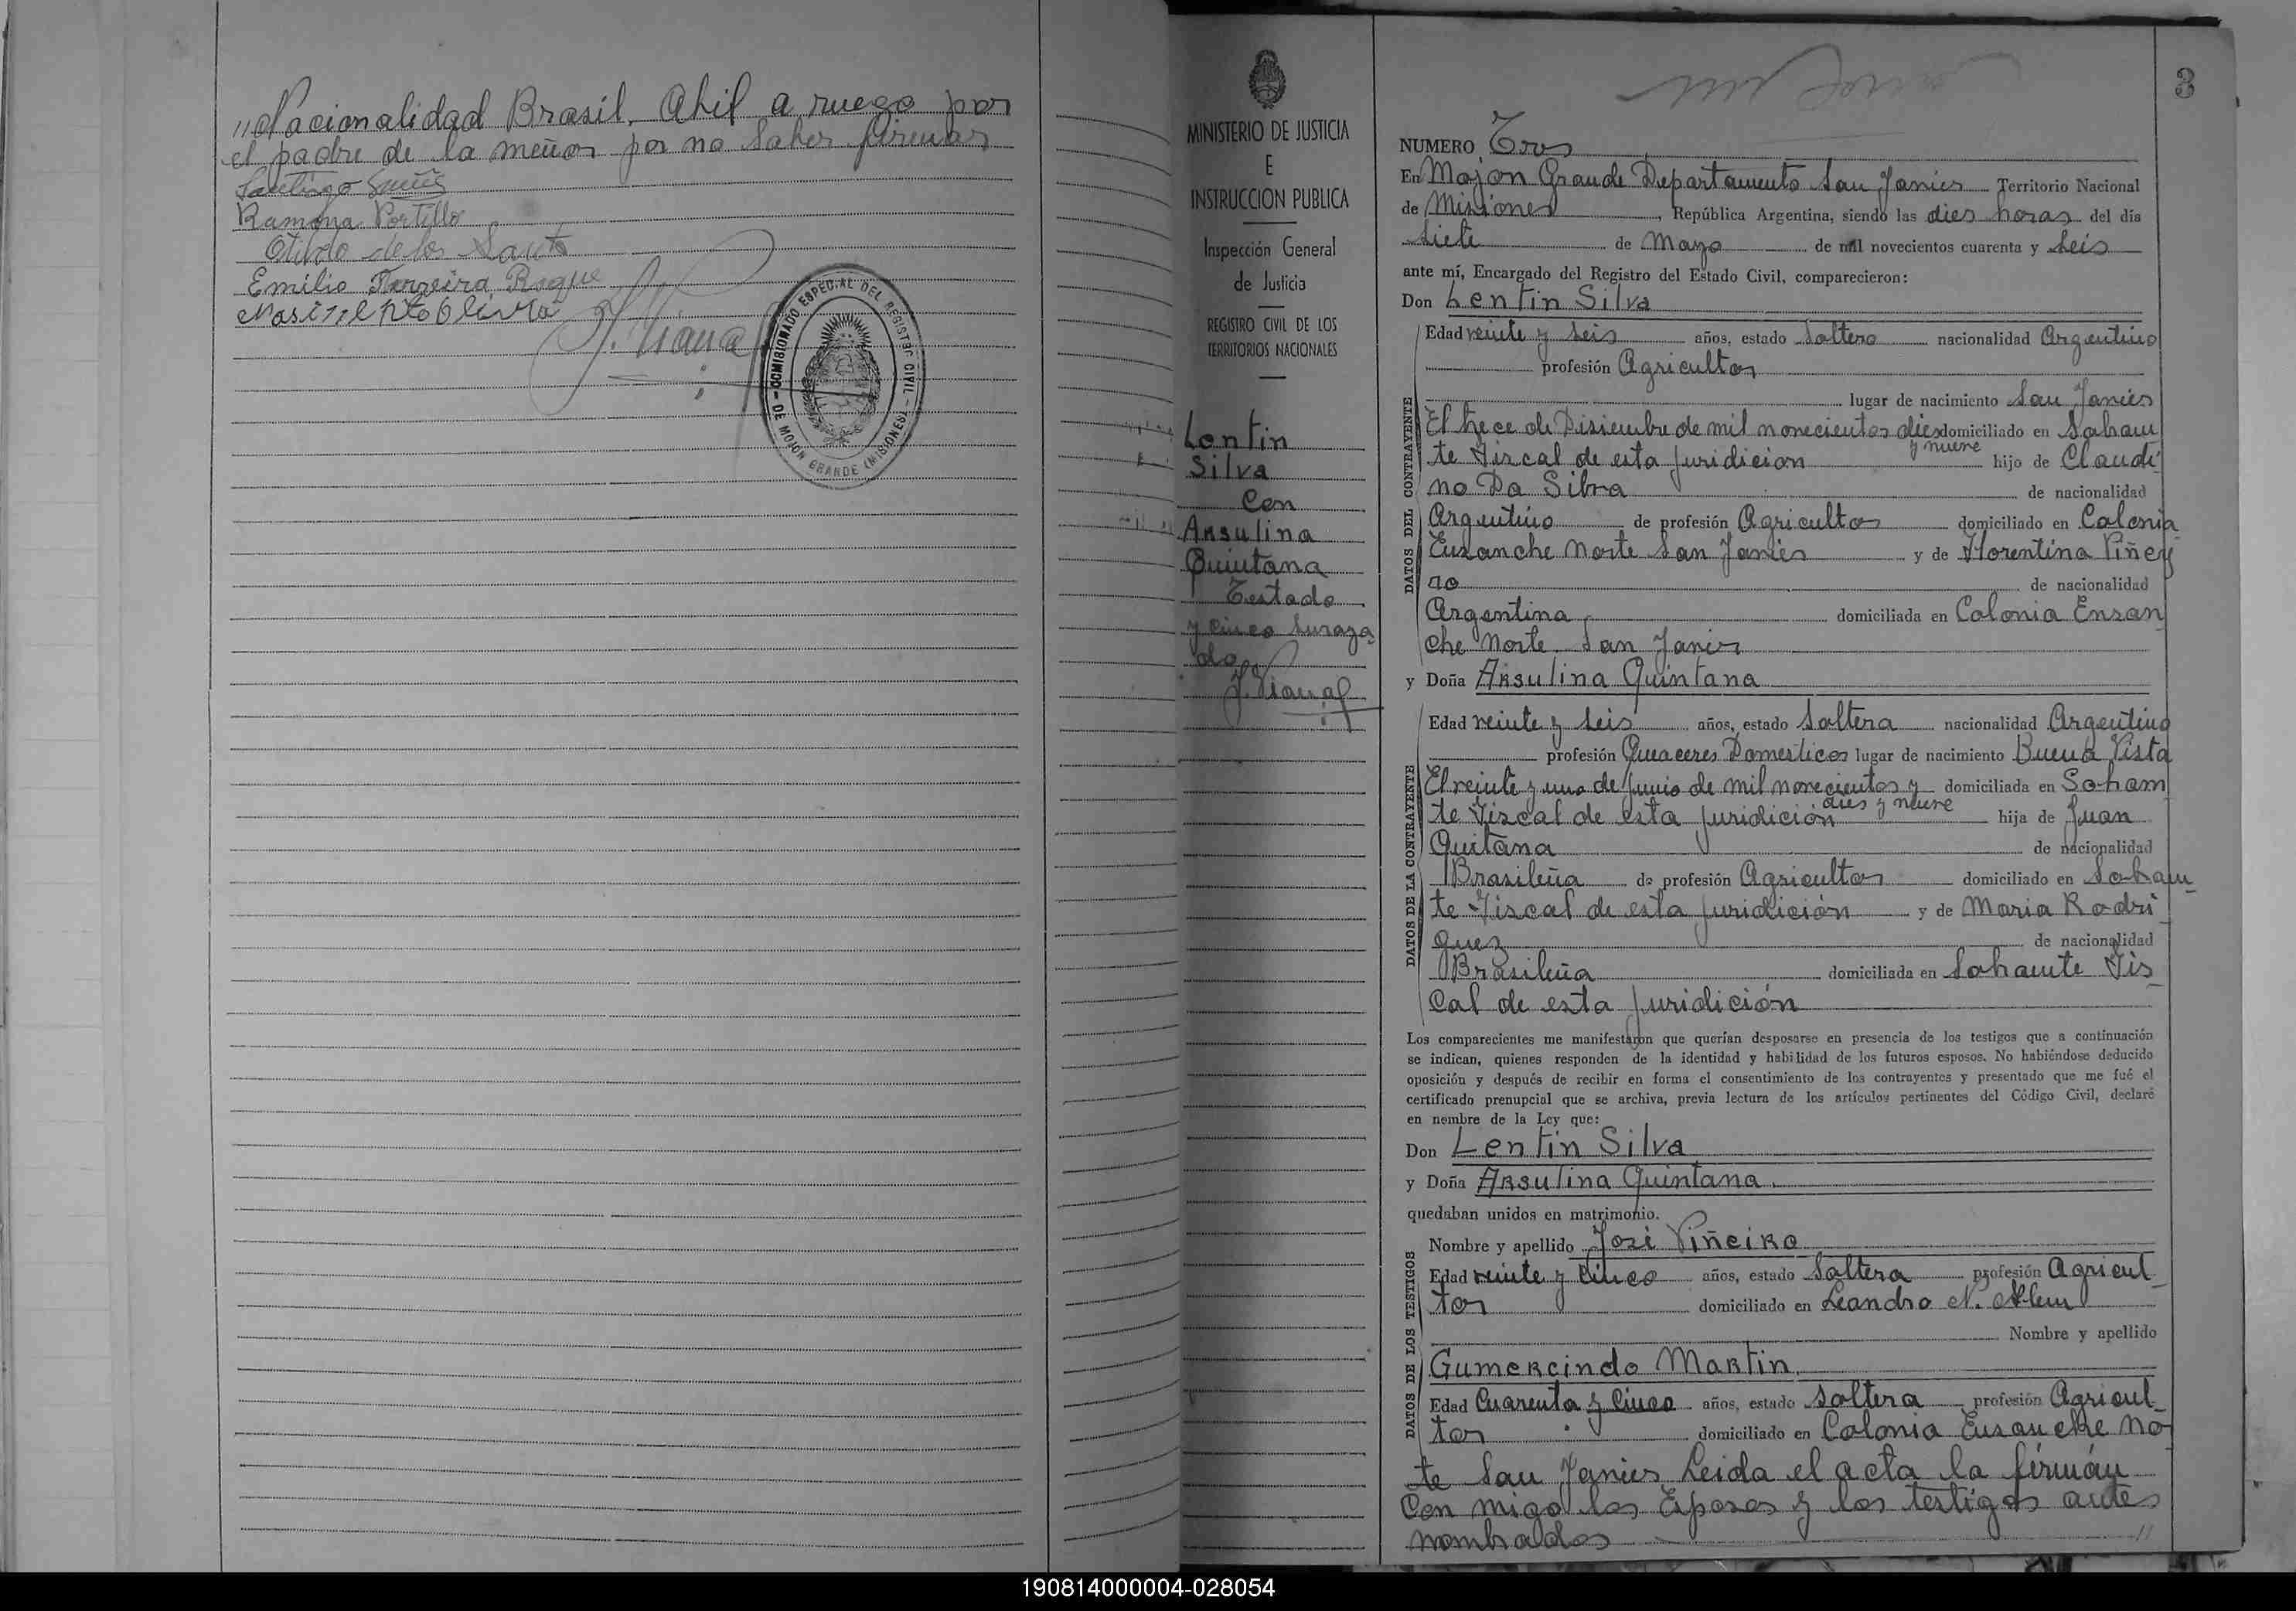 "Nacionalidad Brasil. Abil a ruego por
el padre de la menor por no saber firmar
Santiago
Ramona Portillo
de los Santo
Emilio Ferreira Roque
COMISIONADO ESPECIAL DEL REGISTRO CIVIL - DE MOJON GRANDE (MISIONES)
MINISTERIO DE JUSTICIA
E
INSTRUCCION PUBLICA
Inspección General
de Justicia
REGISTRO CIVIL DE LOS
TERRITORIOS NACIONALES
Lentin
Silva
Con
Arsulina
Quintana
Testado
y cinco
3
NUMERO Tres
En Mojon Grande Departamento San Javier Territorio Nacional
de Misiones, República Argentina, siendo las dies horas del día
siete de Mayo de mil novecientos cuarenta y seis
ante mí, Encargado del Registro del Estado Civil, comparecieron:
Don Lentin Silva
Edad veinte y seis años, estado Soltero nacionalidad Argentino
profesión Agricultor
lugar de nacimiento San Javier
DATOS DEL CONTRAYENTE
El trece de Disiembre de mil novecientos dies domiciliado en Saham
y nueve
te Fiscal de esta juridicion hijo de Claudi
no Da Silva de nacionalidad
Argentino de profesión Agricultor domiciliado en Colonia
Ensanche Norte San Javier y de Florentina Piñey
ro de nacionalidad
Argentina domiciliada en Colonia Ensan
che Norte San Javier
y Doña Arsulina Quintana
Edad veinte y seis años, estado Soltera nacionalidad Argentina
profesión Queaceres Domesticos lugar de nacimiento Buena Vista
DATOS DE LA CONTRAYENTE
El veinte y uno de Junio de mil novecientos y domiciliada en Soham
dies y nueve
te Fiscal de esta juridición hija de Juan
Quitana de nacionalidad
Brasileña de profesión Agricultor domiciliado en Soham
te Fiscal de esta juridición y de Maria Rodri
guez de nacionalidad
Brasileña domiciliada en Sohamte Fis
cal de esta juridición
Los comparecientes me manifestaron que querían desposarse en presencia de los testigos que a continuación
se indican, quienes responden de la identidad y habilidad de los futuros esposos. No habiéndose deducido
oposición y después de recibir en forma el consentimiento de los contrayentes y presentado que me fué el
certificado prenupcial que se archiva, previa lectura de los artículos pertinentes del Código Civil, declaré
en nombre de la Ley que:
Don Lentin Silva
y Doña Arsulina Quintana
quedaban unidos en matrimonio.
DATOS DE LOS TESTIGOS
Nombre y apellido José Piñeiro
Edad veinte y cinco años, estado Soltera profesión Agricul
tor domiciliado en Leandro N. Alem
Nombre y apellido
Gumercindo Martin
Edad Cuarenta y Cinco años, estado Soltera profesión Agricul
tor domiciliado en Colonia Ensanche No
te San Javier Leida el acta la firmán
Con migo los Esposos y los testigos ante
nombrados "
190814000004-028054